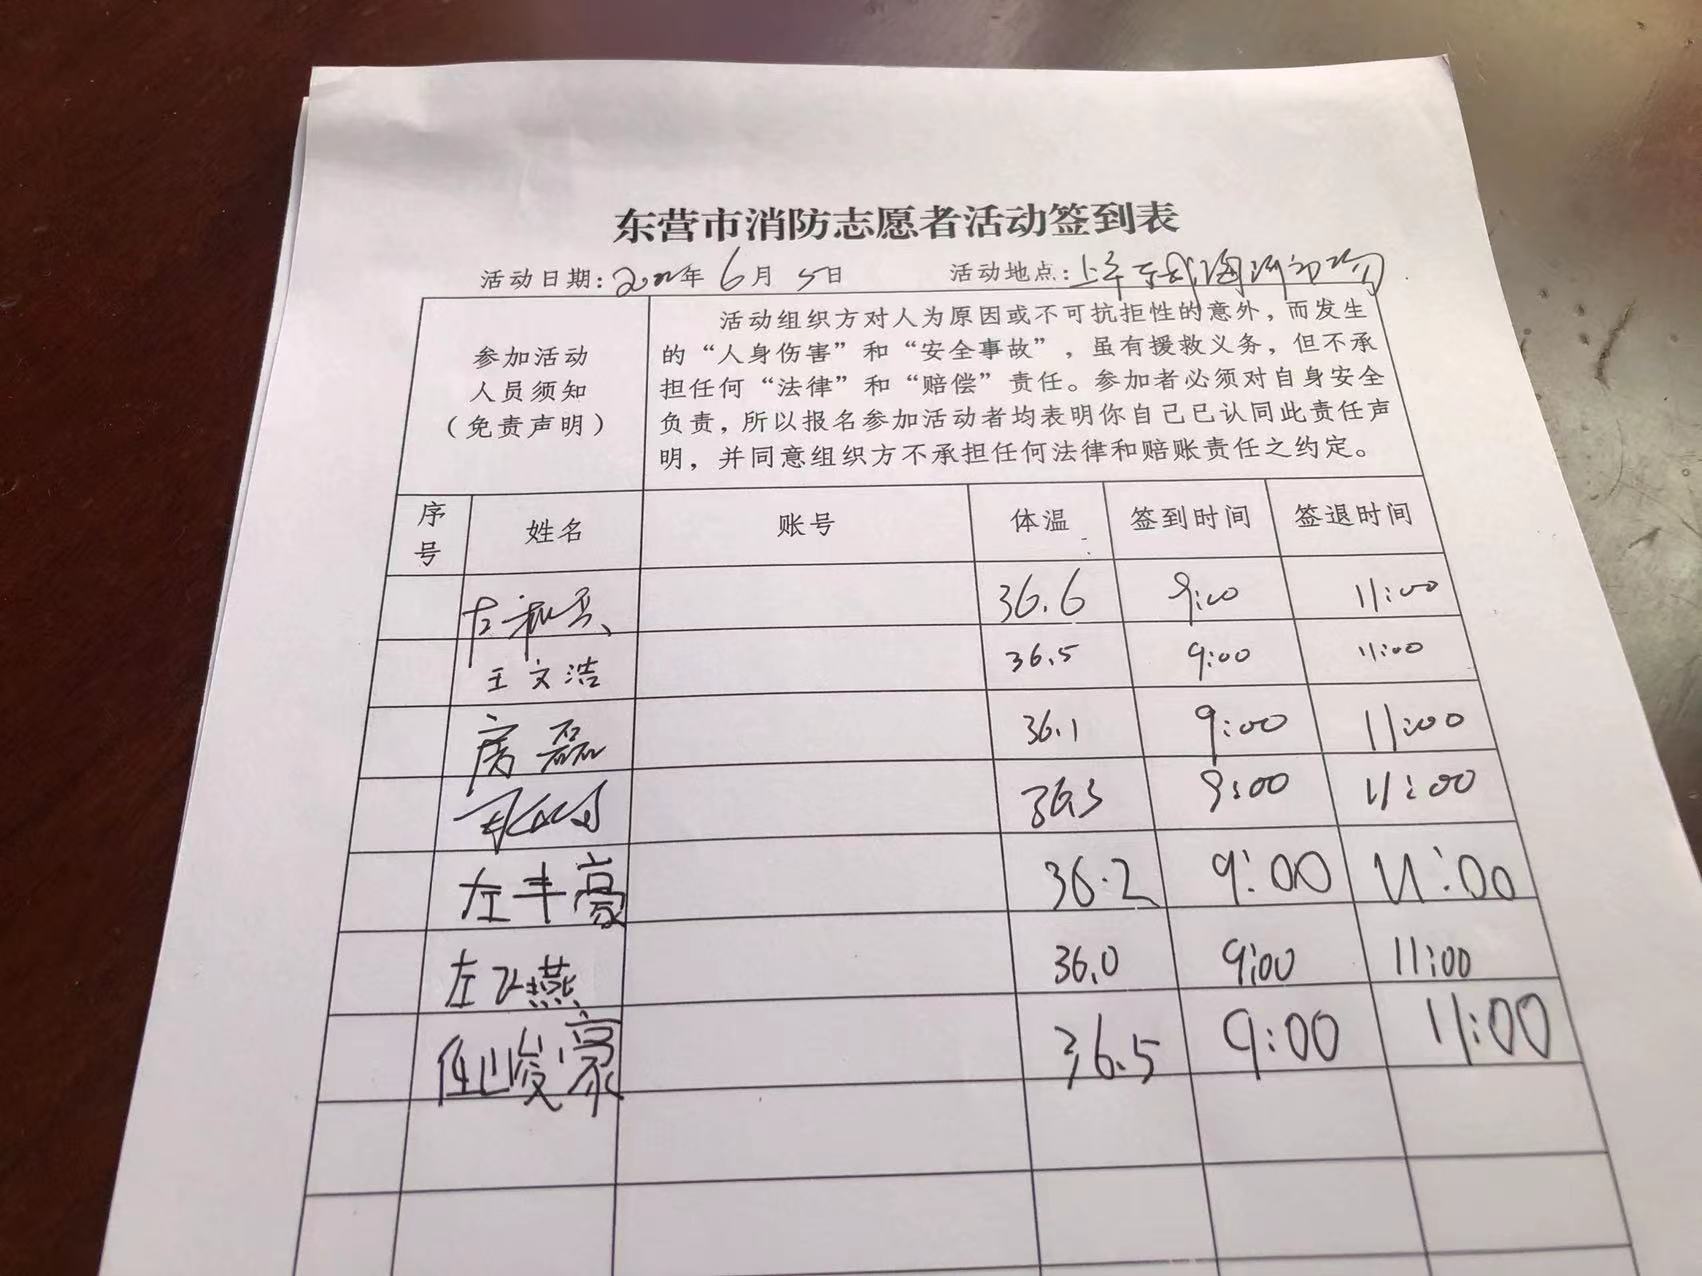 东营市消防志愿者活动签到表
活动日期：2022年 6月 5日 活动地点：
参加活动
人员须知
（免责声明）
活动组织方对人为原因或不可抗拒性的意外，而发生
的“人身伤害”和“安全事故”，虽有援救义务，但不承
担任何“法律”和“赔偿”责任。参加者必须对自身安全
负责，所以报名参加活动者均表明你自己已认同此责任声
明，并同意组织方不承担任何法律和赔账责任之约定。
序号 姓名 账号 体温 签到时间 签退时间
36.6 9:00 11:00
王文浩 36.5 9:00 11:00
房磊 36.1 9:00 11:00
36.3 9:00 11:00
左丰豪 36.2 9:00 11:00
左飞燕 36.0 9:00 11:00
俊豪 36.5 9:00 11:00